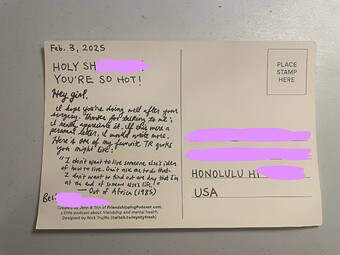 Feb. 3, 2025
HOLY SH
YOU'RE SO HOT!
Hey girl,
I hope you're doing well after your
surgery. Thanks for talking to me;
I really appreciate it. If this were a
personal letter, I would write more.
Here's one of my favorite TR quotes
you might like:
"I don't want to live someone else's idea
of how to live. Don't ask me to do that.
I don't want to find out one day that I'm
at the end of someone else's life."
- Out of Africa (1985)
Created by Jenn & Trin of FriendshippingPodcast.com,
a little podcast about friendship and mental health.
Designed by Nick Trujillo
PLACE
STAMP
HERE
HONOLULU HI
USA